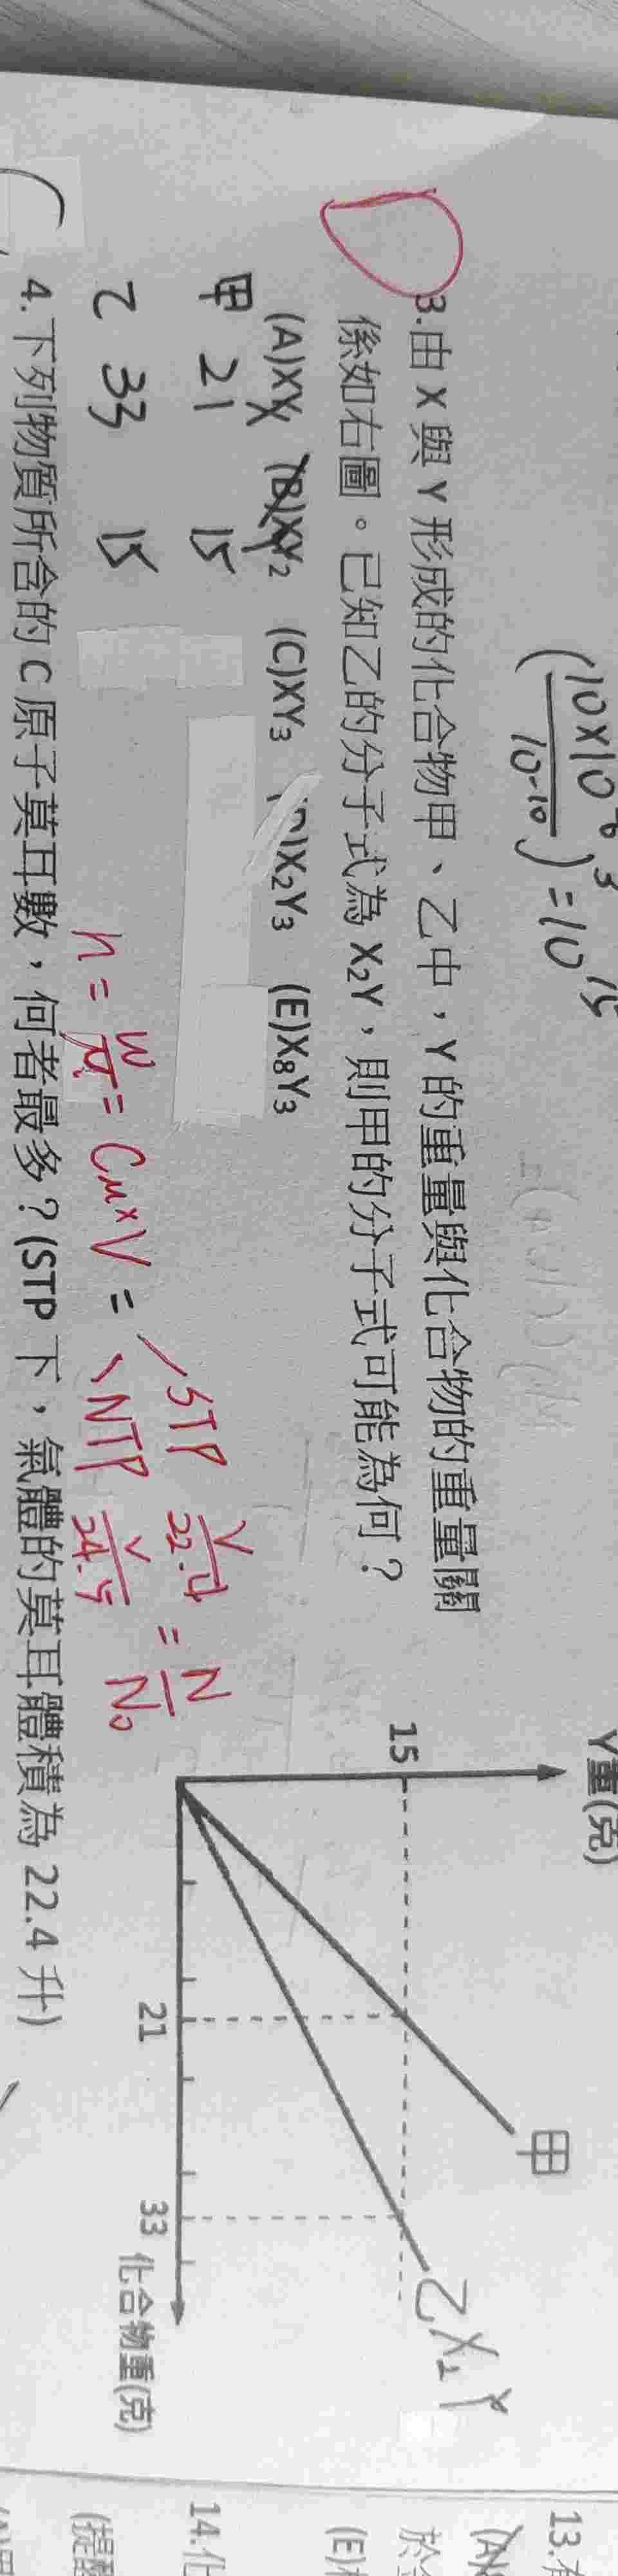 (10×10⁻⁶/10⁻¹⁰)³=10¹⁵
3.由 X 與 Y 形成的化合物甲、乙中，Y 的重量與化合物的重量關
係如右圖。已知乙的分子式為 X₂Y，則甲的分子式可能為何？
(A)XY (B)XY₂ (C)XY₃ (D)X₂Y₃ (E)X₈Y₃
甲 21 15
乙 33 15
n = w/M = CM×V =
STP V/22.4
NTP V/24.5
= N/N₀
Y重(克)
15
甲
乙 X₂Y
21
33
化合物重(克)
4.下列物質所含的 C 原子莫耳數，何者最多？(STP 下，氣體的莫耳體積為 22.4 升)
13.有
(A)
於
(E)
14.化
(提醒